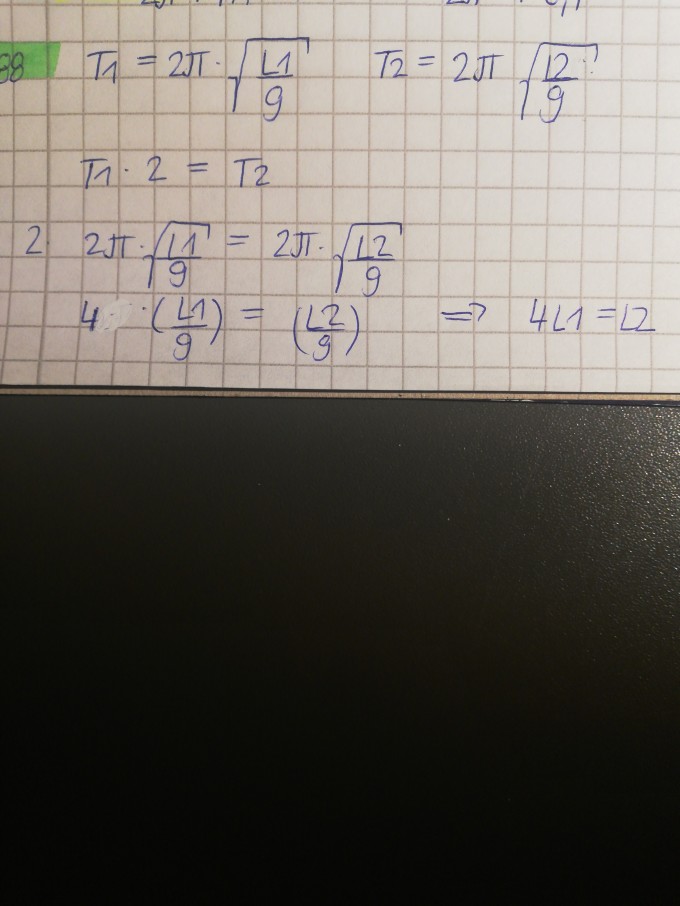 38 T1 = 2π · √(L1/g) T2 = 2π √(L2/g)
T1 · 2 = T2
2 2π · √(L1/g) = 2π · √(L2/g)
4 · (L1/g) = (L2/g) => 4L1 = L2